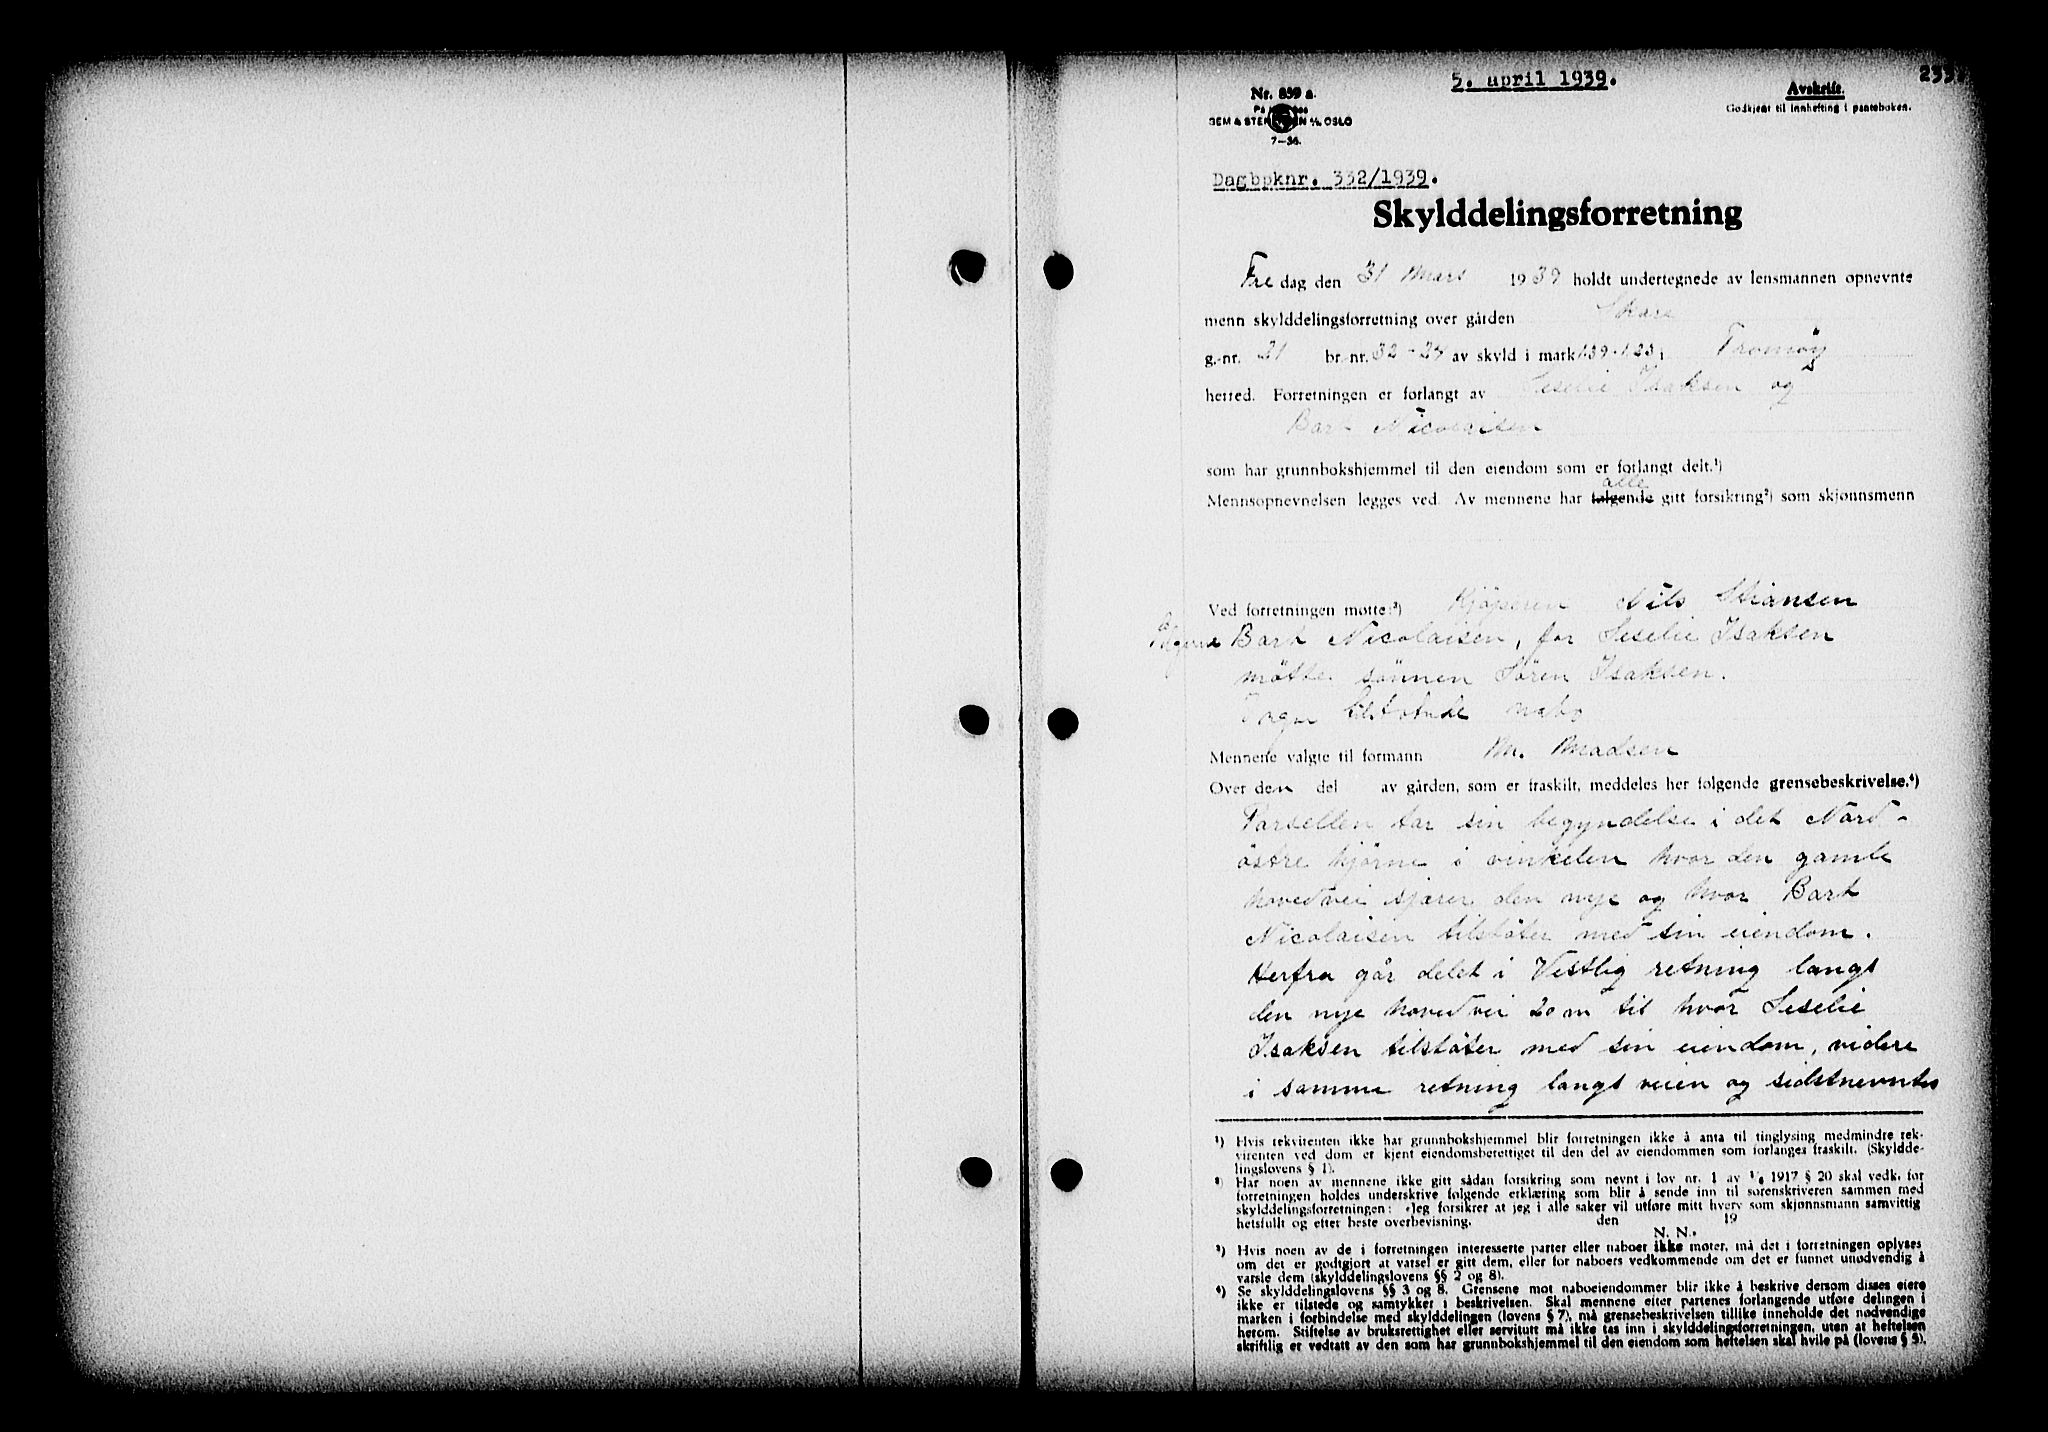 5. april 1939.
Nr. 839 a.
SEM & STENERSEN A/S OSLO
7–36.
Avskrift.
Godkjent til innhefting i panteboken.
Dagboknr. 332/1939.
Skylddelingsforretning
Fredag den 31 Mars 1939 holdt undertegnede av lensmannen opnevnte
menn skylddelingsforretning over gården Skare
g.-nr. 21 br.-nr. 32-24 av skyld i mark 1.39-1.23 i Tromøy
herred. Forretningen er forlangt av Seselie Isaksen og
Bart Nicolaisen
som har grunnbokshjemmel til den eiendom som er forlangt delt.¹)
Mennsopnevnelsen legges ved. Av mennene har følgende alle gitt forsikring²) som skjønnsmenn
Ved forretningen møtte:³) Kjøperen Nils
Bart Nicolaisen, for Seselie Isaksen
møtte sønnen Søren Isaksen.
nabo
Mennene valgte til formann M. Madsen
Over den del av gården, som er fraskilt, meddeles her følgende grensebeskrivelse.⁴)
Parsellen tar sin begyndelse i det Nord-
østre hjørne i vinkelen hvor den gamle
hovedvei sjærer den nye og hvor Bart
Nicolaisen tilstøter med sin eiendom.
Herfra går delet i Vestlig retning langs
den nye hovedvei 20 m til hvor Seselie
Isaksen tilstøter med sin eiendom, videre
i samme retning langs veien og sidstnevntes
¹) Hvis rekvirenten ikke har grunnbokshjemmel blir forretningen ikke å anta til tinglysing medmindre rek-
virenten ved dom er kjent eiendomsberettiget til den del av eiendommen som forlanges fraskilt. (Skyldde-
lingslovens § 1).
²) Har noen av mennene ikke gitt sådan forsikring som nevnt i lov nr. 1 av ¹/₆ 1917 § 20 skal vedk. før
forretningen holdes underskrive følgende erklæring som blir å sende inn til sorenskriveren sammen med
skylddelingsforretningen: «Jeg forsikrer at jeg i alle saker vil utføre mitt hverv som skjønnsmann samvittig
hetsfullt og efter beste overbevisning. den 19
N. N.»
³) Hvis noen av de i forretningen interesserte parter eller naboer ikke møter, må det i forretningen oplyses
om det er godtgjort at varsel er gitt dem, eller for naboers vedkommende om det er funnet unødvendig å
varsle dem (skylddelingslovens §§ 2 og 8).
⁴) Se skylddelingslovens §§ 3 og 8. Grensene mot naboeiendommer blir ikke å beskrive dersom disses eiere
ikke er tilstede og samtykker i beskrivelsen. Skal mennene efter partenes forlangende utføre delingen i
marken i forbindelse med skylddelingen (lovens § 7), må grensebeskrivelsen tillike inneholde det nødvendige
herom. Stiftelse av bruksrettighet eller servitutt må ikke tas inn i skylddelingsforretningen, uten at heftelsen
skriftlig er vedtatt av den som har grunnbokshjemmel til den eiendom som heftelsen skal hvile på (lovens § 5).